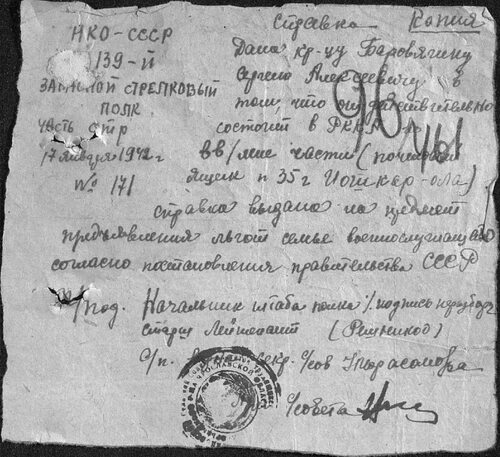 НКО-СССР
139-й
ЗАПАСНОЙ СТРЕЛКОВЫЙ
ПОЛК
Часть стр
17 января 1942 г.
№ 171
Справка
Копия
Дана кр-цу Боровягину
Сергею Алексеевичу в
том, что он действительно
состоит в РККА
в/мне части (почтовый
ящик п 35 г Йошкар-ола)
справка выдана на предмет
предъявления льгот семье военнослужащего
согласно постановления правительства СССР
п/под. Начальник штаба полка / подпись неразборч.
старш Лейтенант (Решников)
С/п. Секр. с/сов Тарасомова
с/совета